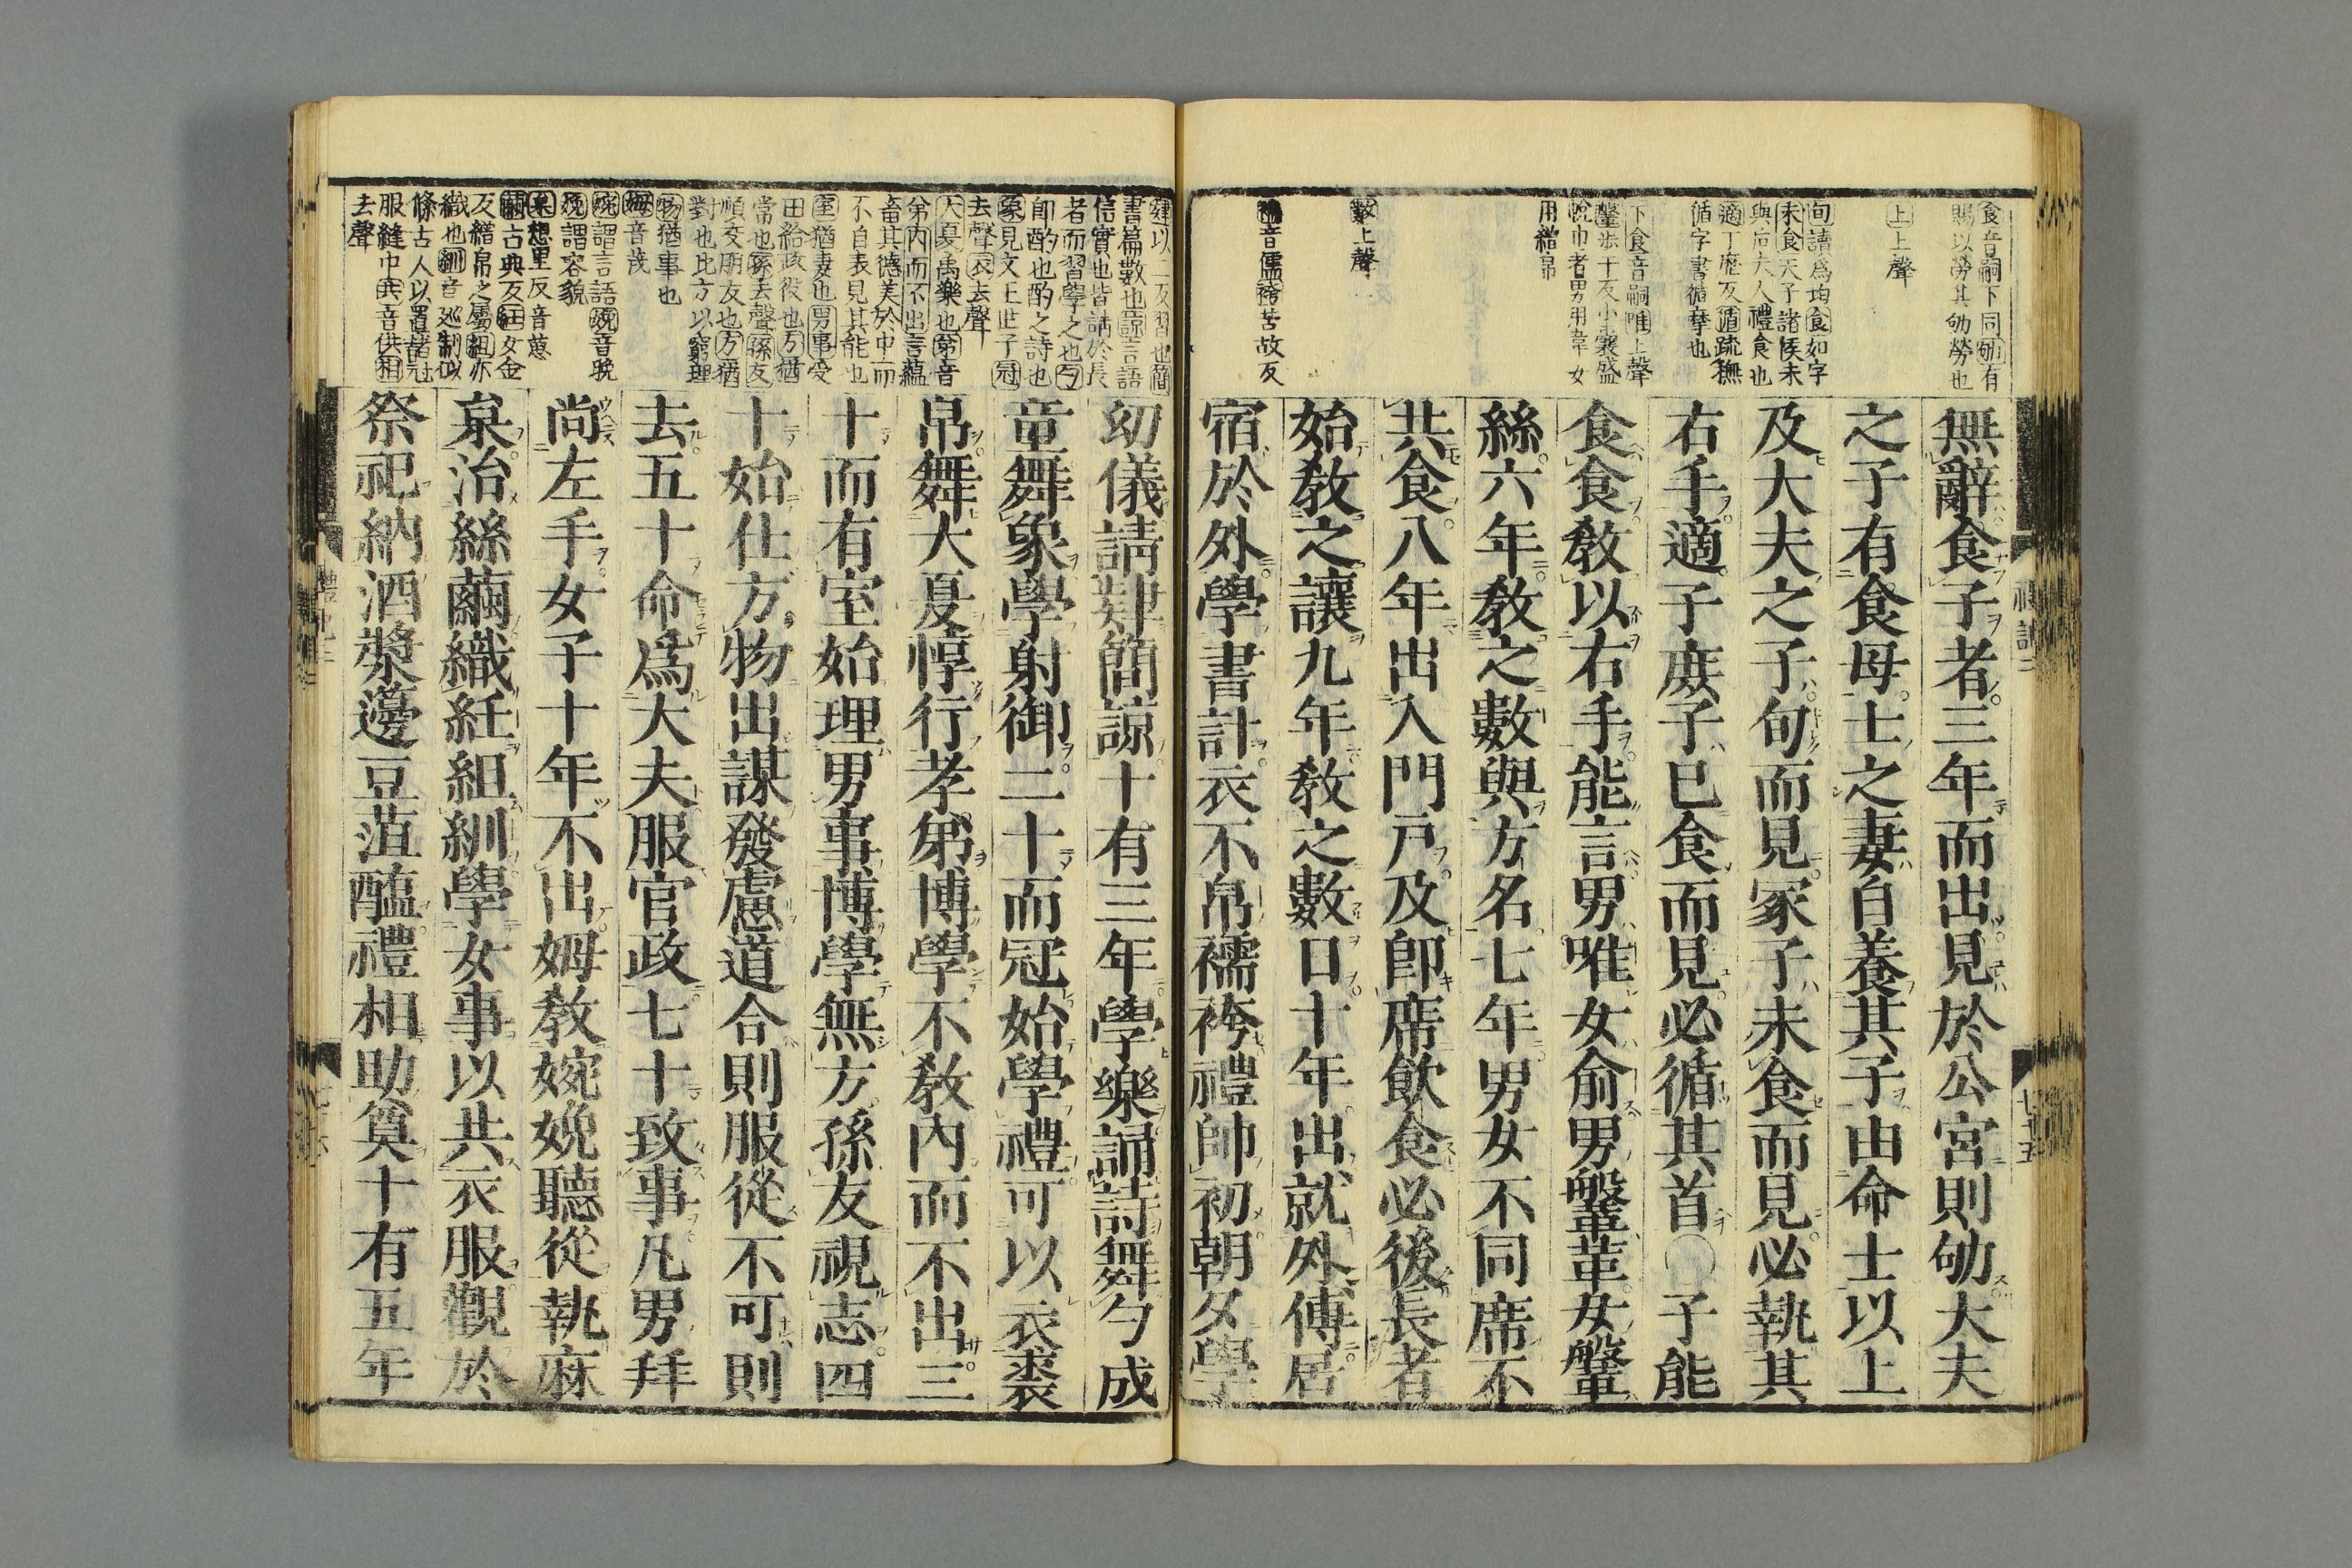 食音嗣下同劬有
賜以勞其劬勞也
上上聲
旬讀爲均食如字
未食天子諸侯未
與后夫人禮食也
適丁歷反循疏撫
循字書循摩也
下食音嗣唯上聲
鞶步干反小囊盛
帨巾者男用韋女
用繒帛
數上聲
襦音儒袴苦故反
無辭食子者三年而出見於公宮則劬大夫
之子有食母士之妻自養其子由命士以上
及大夫之子旬而見冢子未食而見必執其
右手適子庶子已食而見必循其首○子能
食食敎以右手能言男唯女俞男鞶革女鞶
絲六年敎之數與方名七年男女不同席不
共食八年出入門戸及卽席飮食必後長者
始敎之讓九年敎之數日十年出就外傅居
宿於外學書計衣不帛襦袴禮帥初朝夕學
禮記二
七十五
肄以二反習也簡
書篇數也諒言語
信實也皆請於長
者而習學之也勺
卽酌也酌之詩也
象見文王世子冠
去聲衣去聲
大夏禹樂也弟音
弟內而不出言蘊
畜其德美於中而
不自表見其能也
室猶妻也男事受
田給政役也方猶
常也孫去聲孫友
順交朋友也方猶
對也比方以窮理
物猶事也
姆音茂
婉謂言語娩音晚
娩謂容貌
枲想里反音葸
繭古典反紝女金
反繒帛之屬組亦
織也紃音巡制似
絛古人以置諸冠
服縫中共音供相
去聲
幼儀請肄簡諒十有三年學樂誦詩舞勺成
童舞象學射御二十而冠始學禮可以衣裘
帛舞大夏惇行孝弟博學不敎內而不出三
十而有室始理男事博學無方孫友視志四
十始仕方物出謀發慮道合則服從不可則
去五十命爲大夫服官政七十致事凡男拜
尚左手女子十年不出姆敎婉娩聽從執麻
枲治絲繭織紝組紃學女事以共衣服觀於
祭祀納酒漿籩豆菹醢禮相助奠十有五年